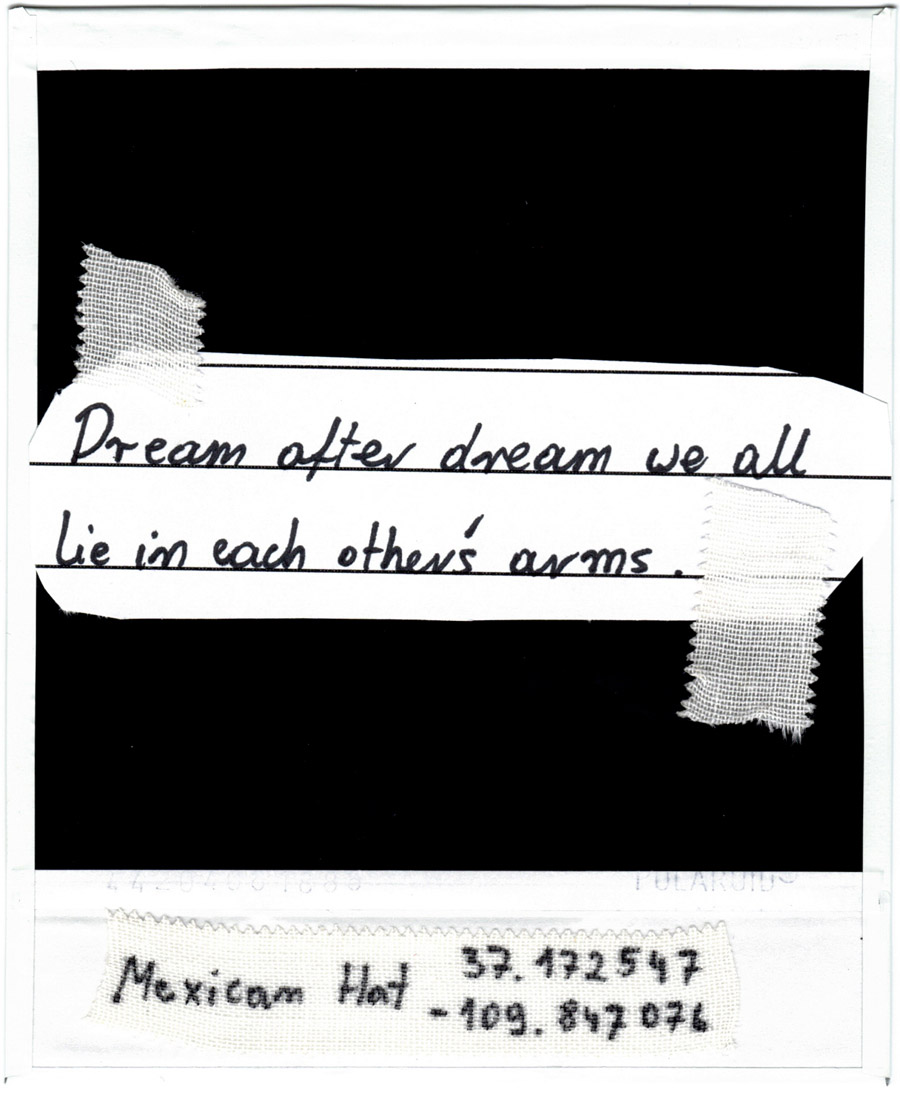 Dream after dream we all
lie in each other's arms.
POLAROID
Mexican Hat 37.172547
-109.847076